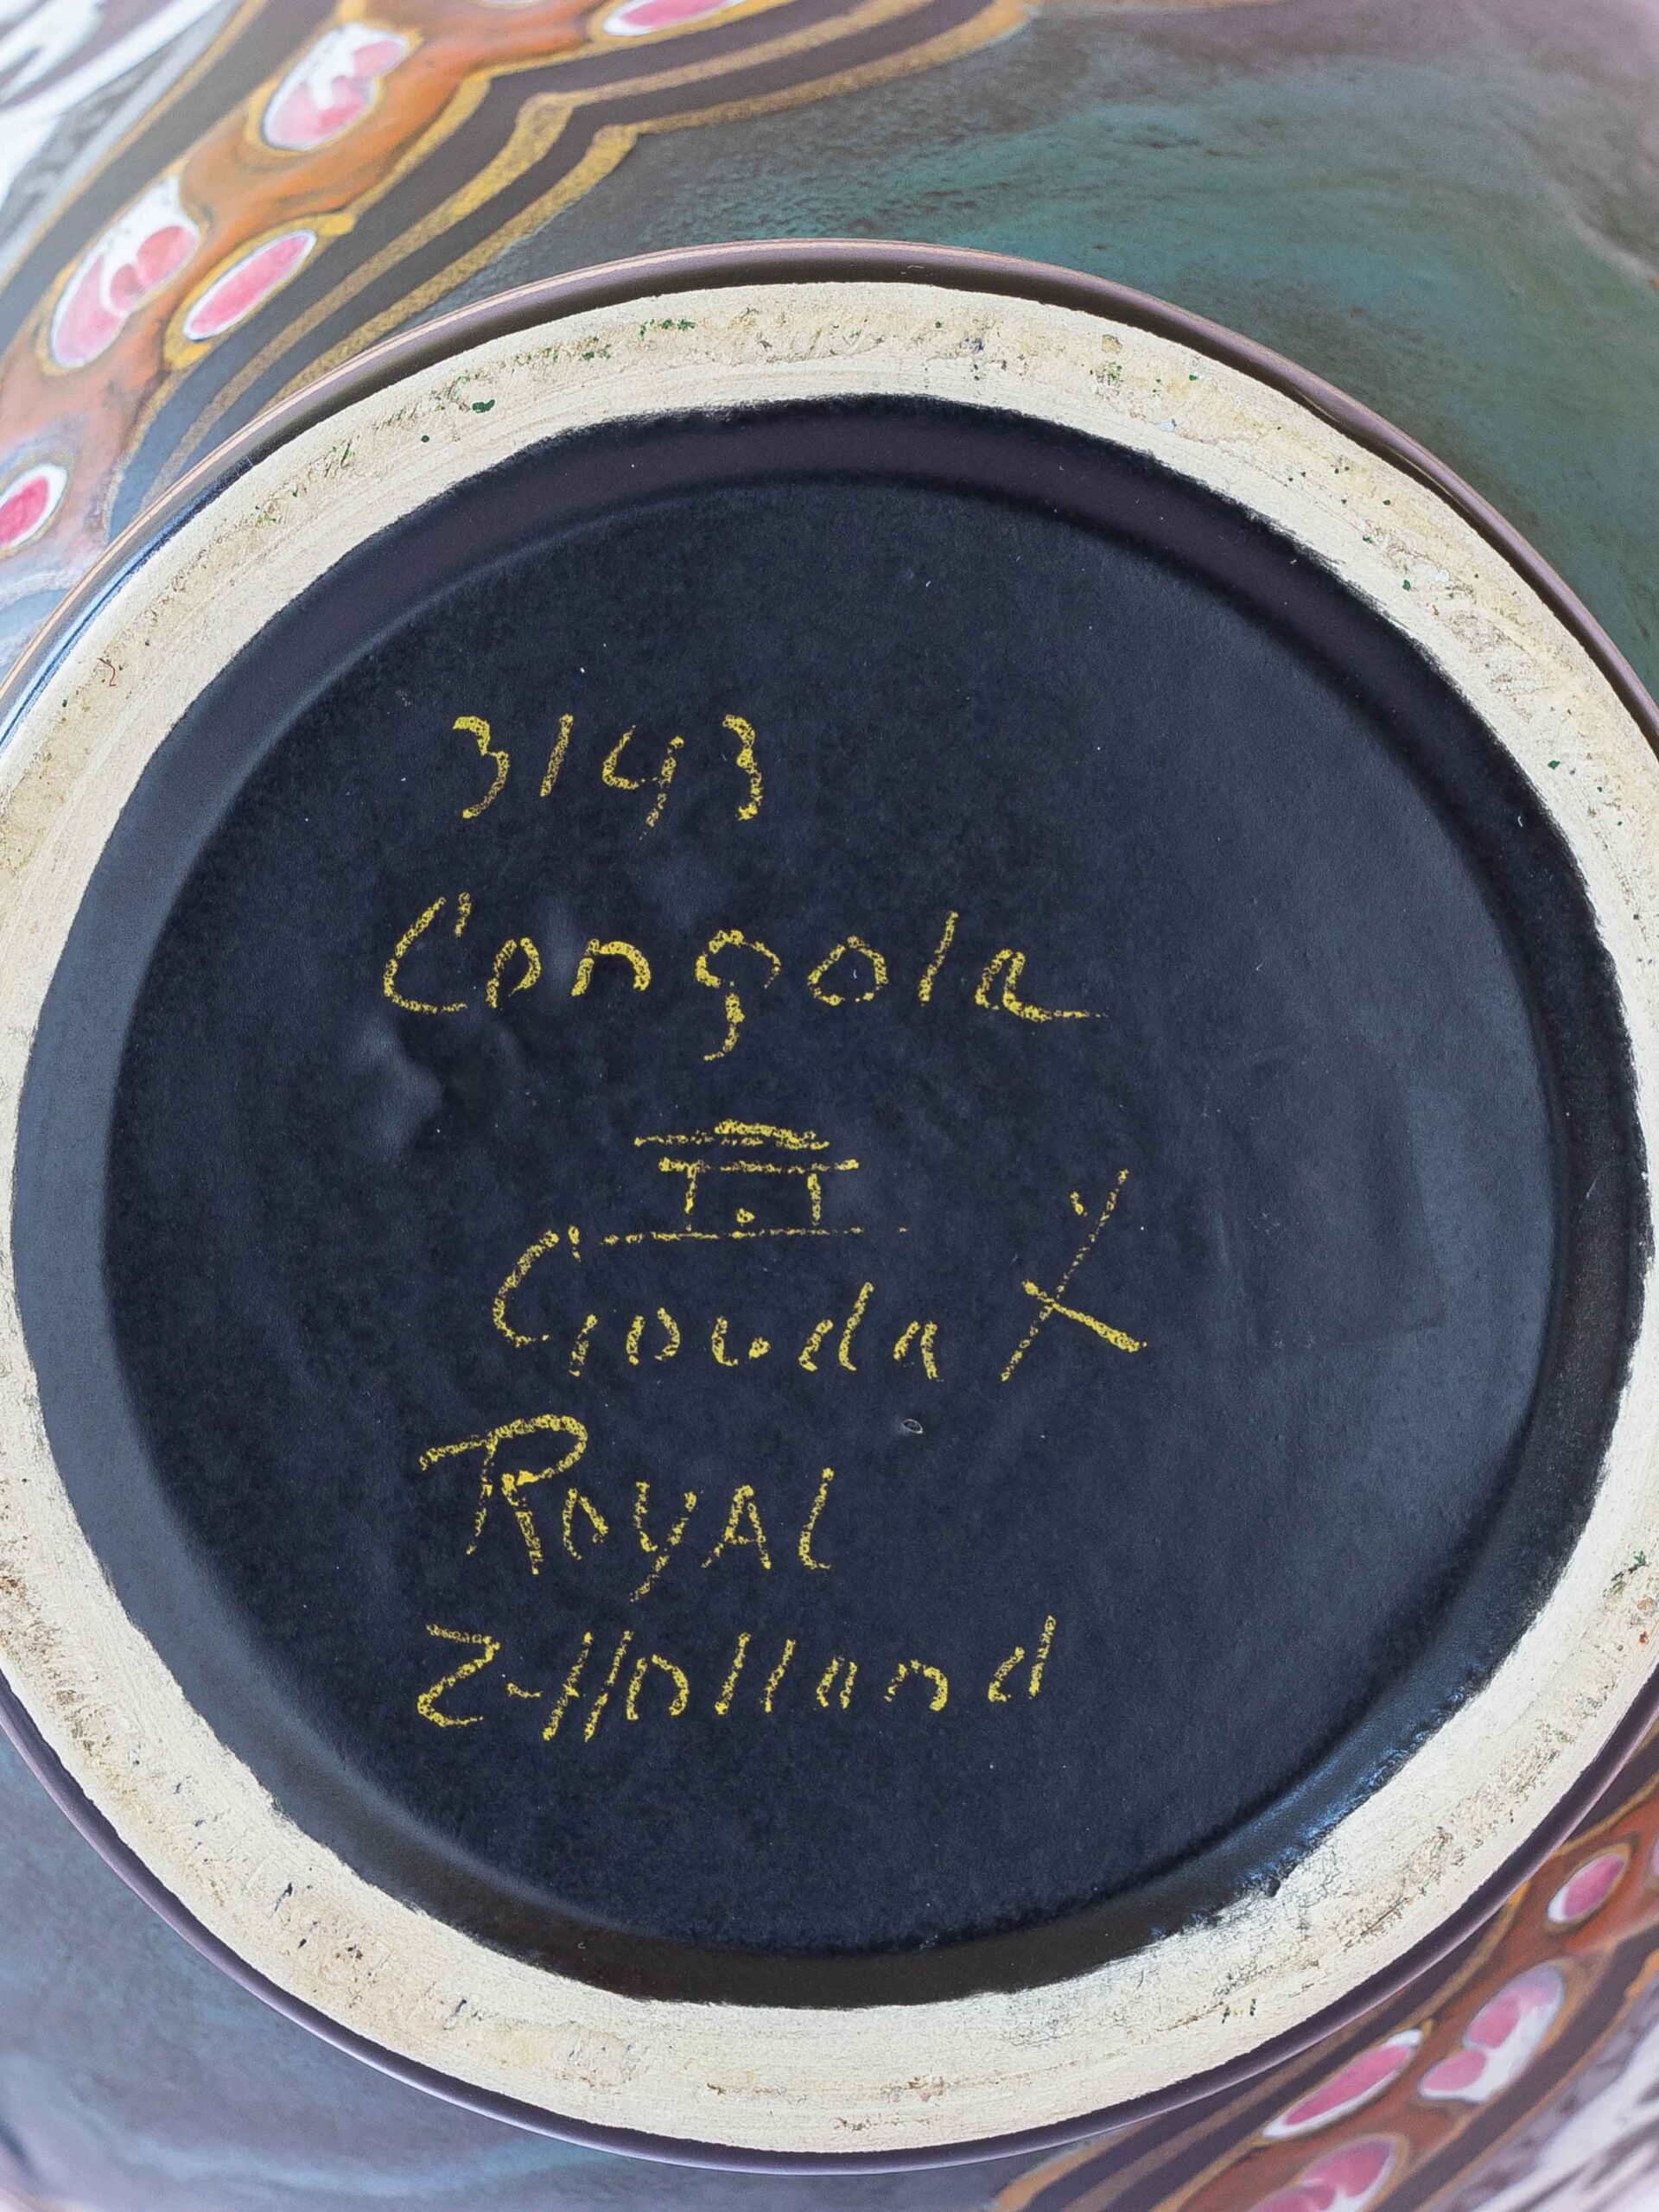 3143
Congola
Gouda
Royal
Z-Holland